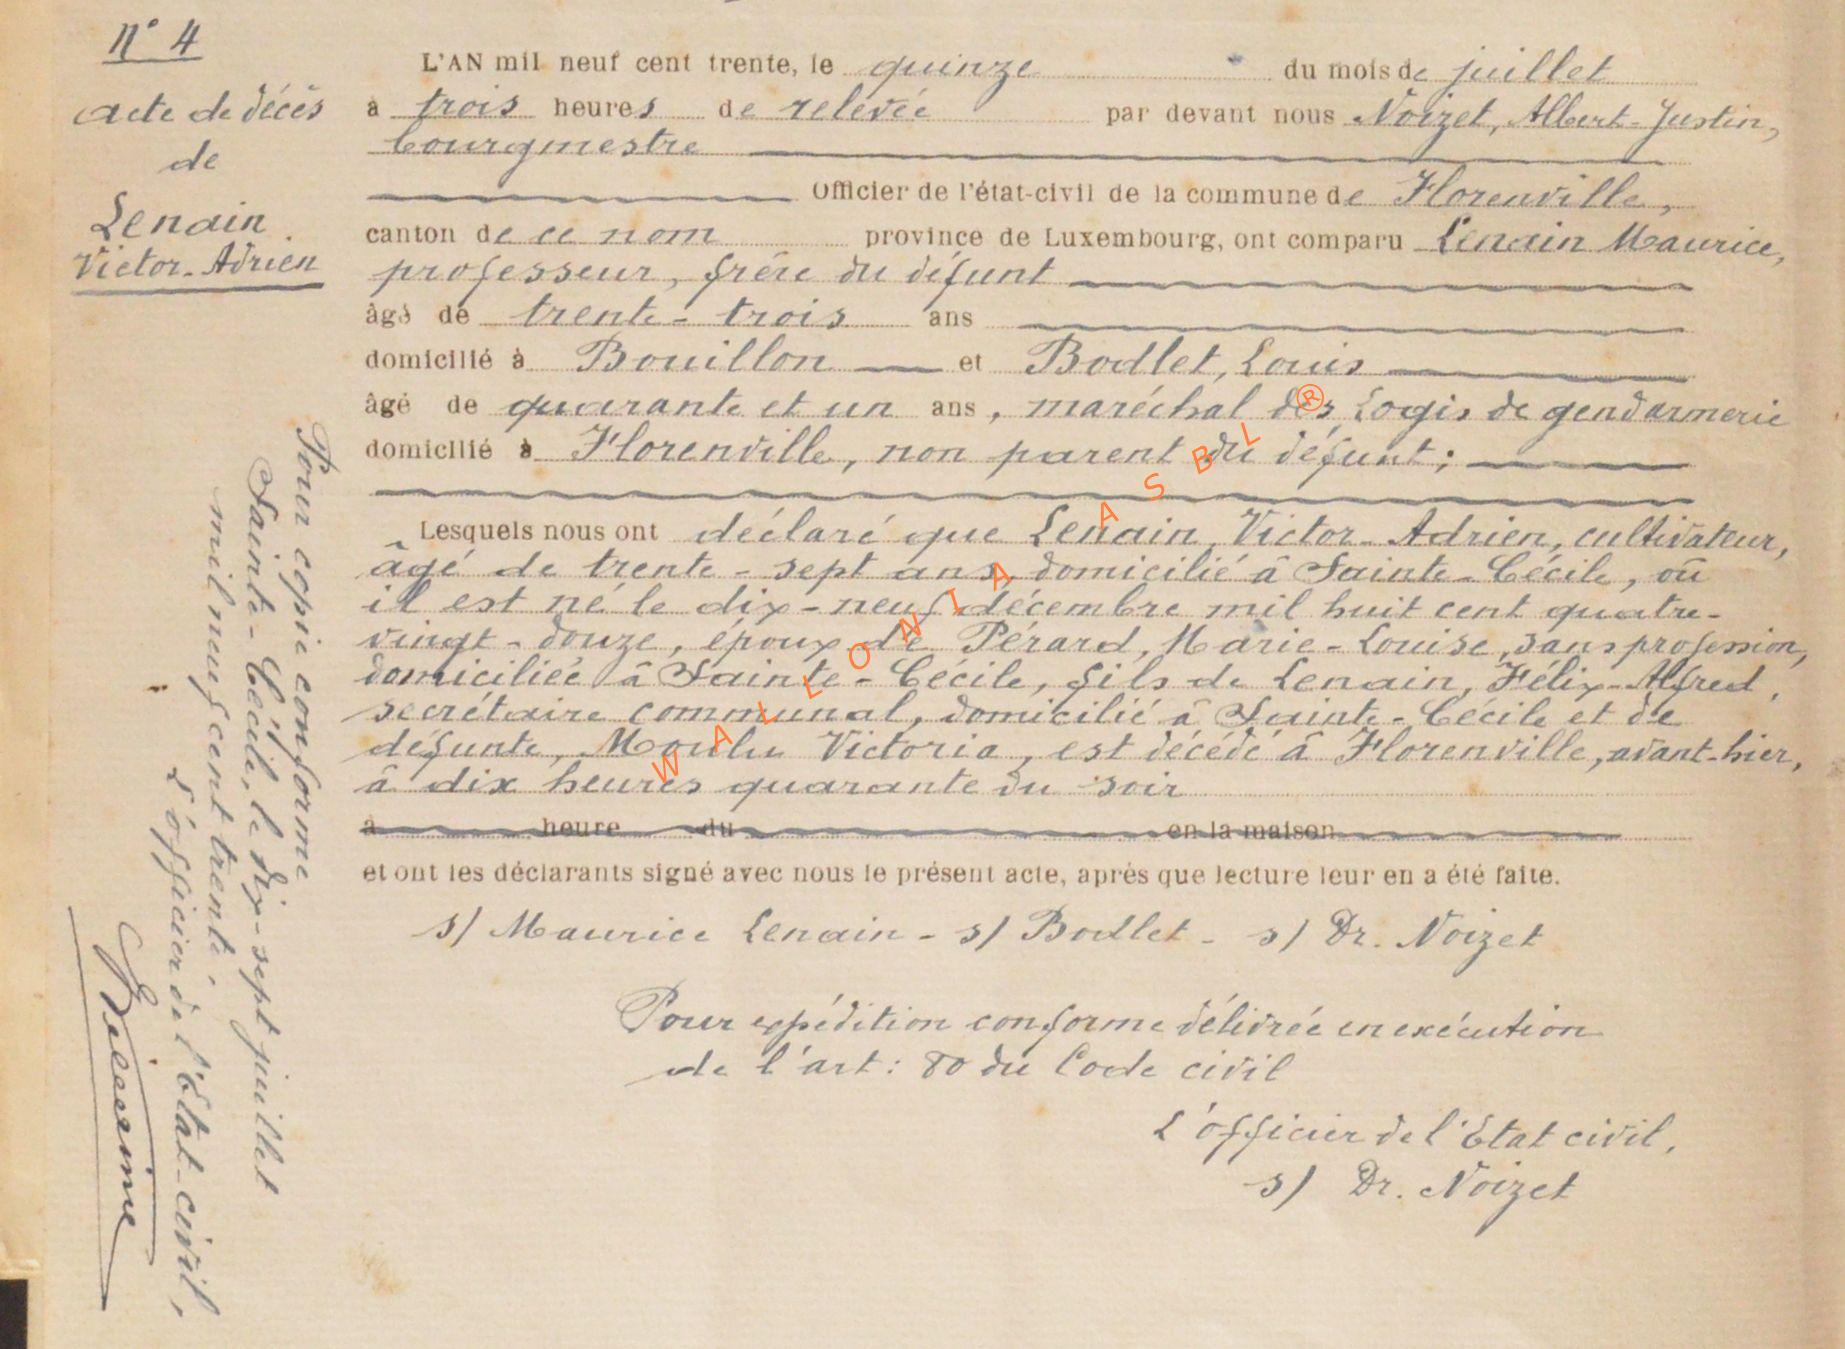 N° 4
Acte de décès
de
Lenain
Victor-Adrien
L'AN mil neuf cent trente, le quinze du mois de juillet
à trois heures de relevée par devant nous Noizet, Albert-Justin,
bourgmestre
Officier de l'état-civil de la commune de Florenville,
canton de ce nom province de Luxembourg, ont comparu Lenain Maurice,
professeur, frère du défunt
âgé de trente-trois ans
domicilié à Bouillon et Bodlet, Louis
âgé de quarante et un ans, maréchal des Logis de gendarmerie
domicilié à Florenville, non parent du défunt;
Lesquels nous ont déclaré que Lenain, Victor-Adrien, cultivateur,
âgé de trente-sept ans, domicilié à Sainte-Cécile, où
il est né le dix-neuf décembre mil huit cent quatre-
vingt-douze, époux de Pérard, Marie-Louise, sans profession,
domiciliée à Sainte-Cécile, fils de Lenain, Félix-Alfred,
secrétaire communal, domicilié à Sainte-Cécile et de
défunte, Moulu Victoria, est décédé à Florenville, avant-hier,
à dix heures quarante du soir
à heure du en la maison
et ont les déclarants signé avec nous le présent acte, après que lecture leur en a été faite.
s/ Maurice Lenain - s/ Bodlet - s/ Dr. Noizet
Pour expédition conforme délivrée en exécution
de l'art: 80 du Code civil
L'officier de l'Etat civil,
s/ Dr. Noizet
Pour copie conforme
Sainte-Cécile, le dix-sept juillet
mil neuf cent trente.
L'officier de l'Etat-civil,
WALLONIA ASBL ®